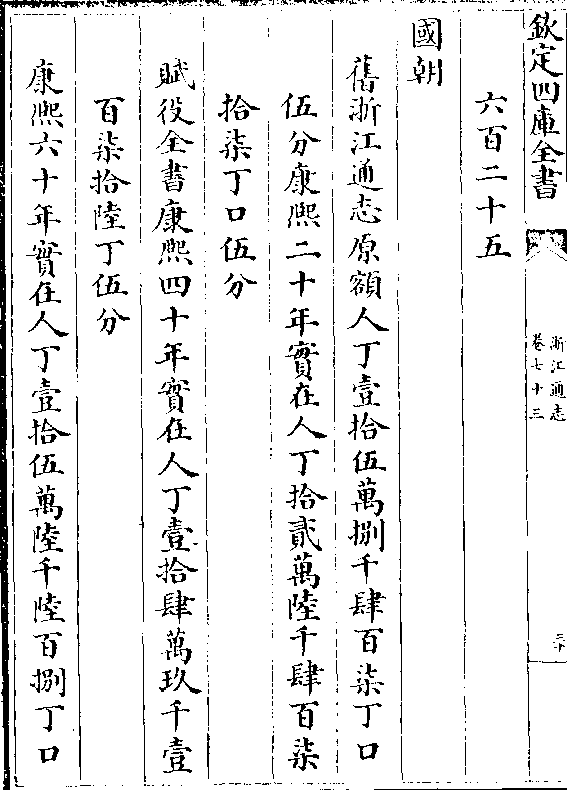 欽定四庫全書
浙江通志
卷七十三
六百二十五
國朝
舊浙江通志原額人丁壹拾伍萬捌千肆百柒丁口
伍分康熙二十年實在人丁拾貳萬陸千肆百柒
拾柒丁口伍分
賦役全書康熙四十年實在人丁壹拾肆萬玖千壹
百柒拾陸丁伍分
康熙六十年實在人丁壹拾伍萬陸千陸百捌丁口